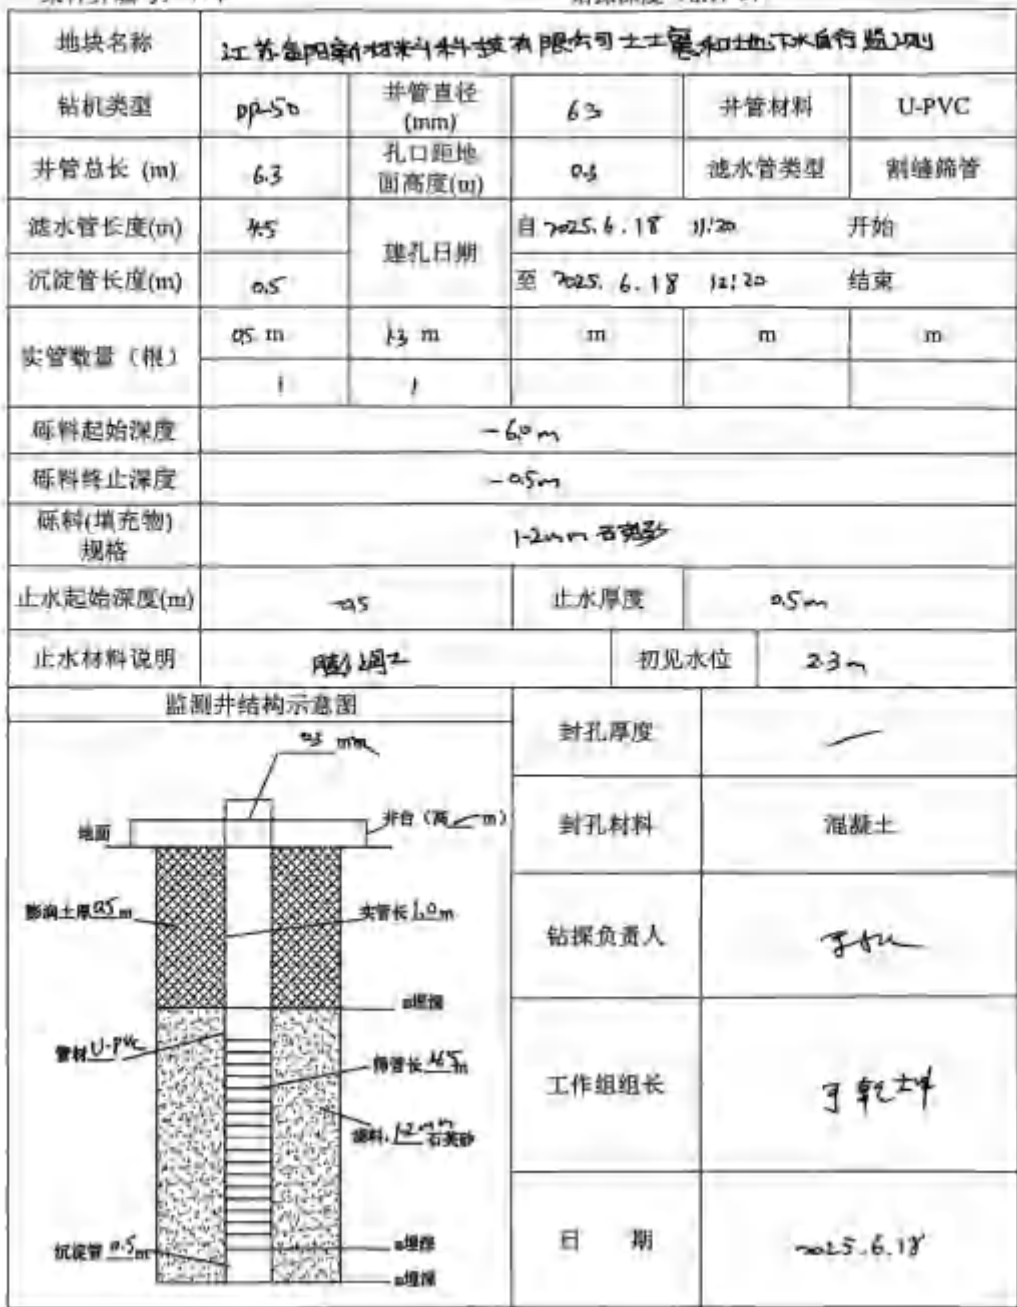 地块名称 江苏 阳新材料科技有限公司土壤和地下水自行监测
钻机类型 DP-50 井管直径(mm) 63 井管材料 U-PVC
井管总长 (m) 6.3 孔口距地面高度(m) 0.3 滤水管类型 割缝筛管
滤水管长度(m) 4.5 建孔日期 自 2025.6.18 11:20 开始
沉淀管长度(m) 0.5 至 2025.6.18 12:20 结束
实管数量（根） 0.5 m 1.3 m m m m
1 1
砾料起始深度 -6.0m
砾料终止深度 -0.5m
砾料(填充物)规格 1-2mm 石英砂
止水起始深度(m) -0.5 止水厚度 0.5m
止水材料说明 膨润土 初见水位 2.3m
监测井结构示意图
0.3 mm
地面
井台（高 m）
膨润土厚0.5m
实管长1.0m
m埋深
管材U-PVC
筛管长4.5m
滤料,1-2mm石英砂
沉淀管0.5m
m埋深
m埋深
封孔厚度
封孔材料 混凝土
钻探负责人
工作组组长 于乾坤
日 期 2025.6.18